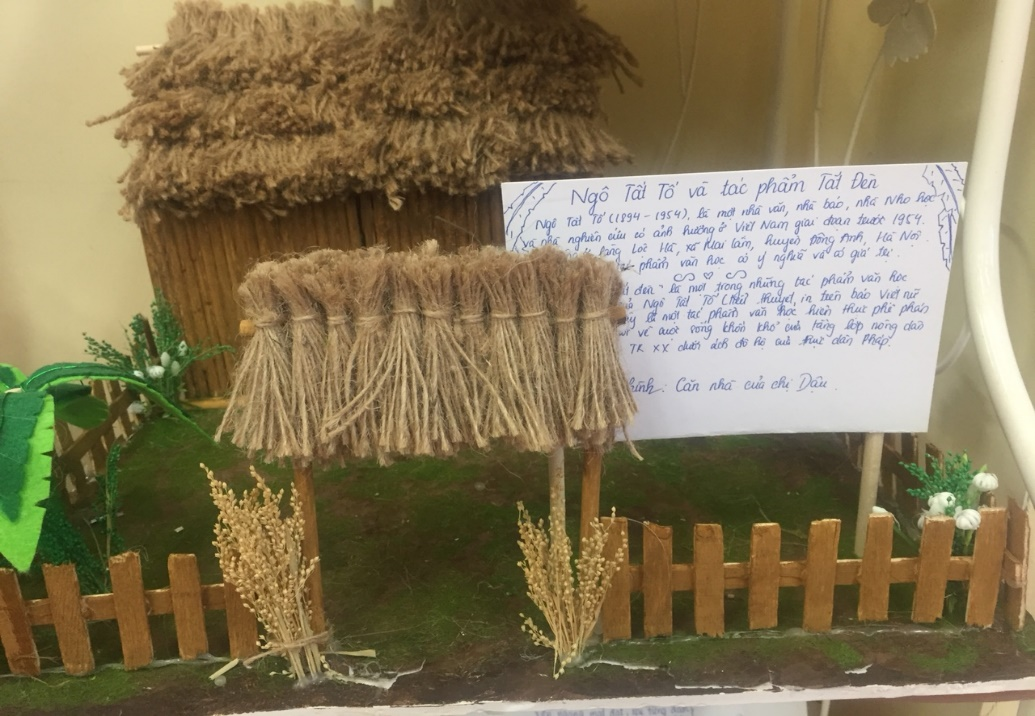 Ngô Tất Tố và tác phẩm Tắt Đèn
Ngô Tất Tố (1894 - 1954), là một nhà văn, nhà báo, nhà Nho học
và nhà nghiên cứu có ảnh hưởng ở Việt Nam giai đoạn trước 1954.
làng Lộc Hà, xã Mai Lâm, huyện Đông Anh, Hà Nội
phẩm văn học có ý nghĩa và có giá trị.
đèn" là một trong những tác phẩm văn học
Ngô Tất Tố (tiểu thuyết, in trên báo Việt nữ
là một tác phẩm văn học hiện thực phê phán
về cuộc sống khốn khổ của tầng lớp nông dân
TK XX dưới ách đô hộ của thực dân Pháp.
hình: Căn nhà của chị Dậu